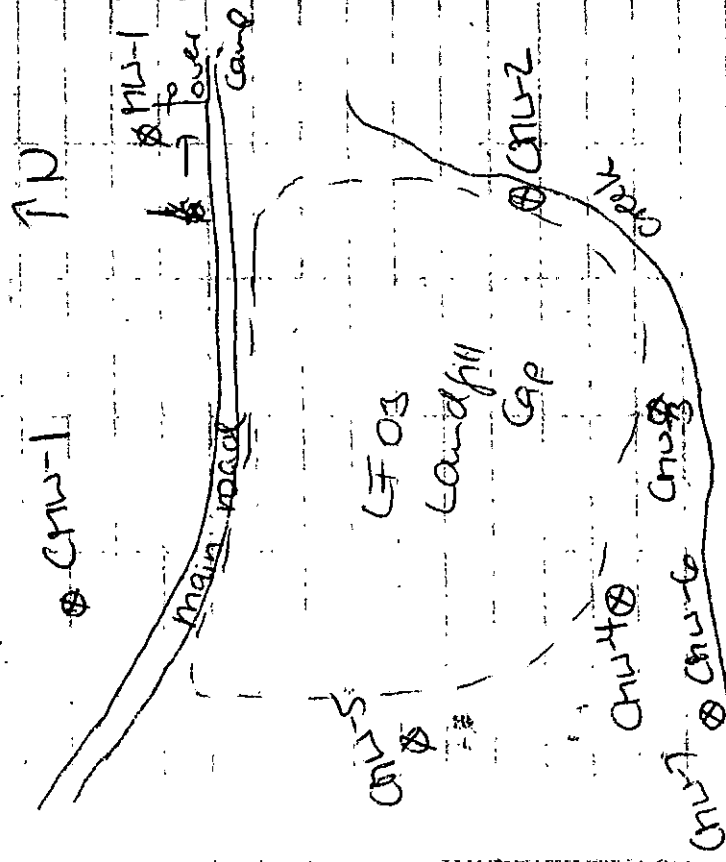 ↑ N
MW-1
to
over
Camp
CMW-1
main road
CMW-2
Creek
LF03
Landfill
Cap
CMW-5
CMW-4
CMW-6
CMW-7